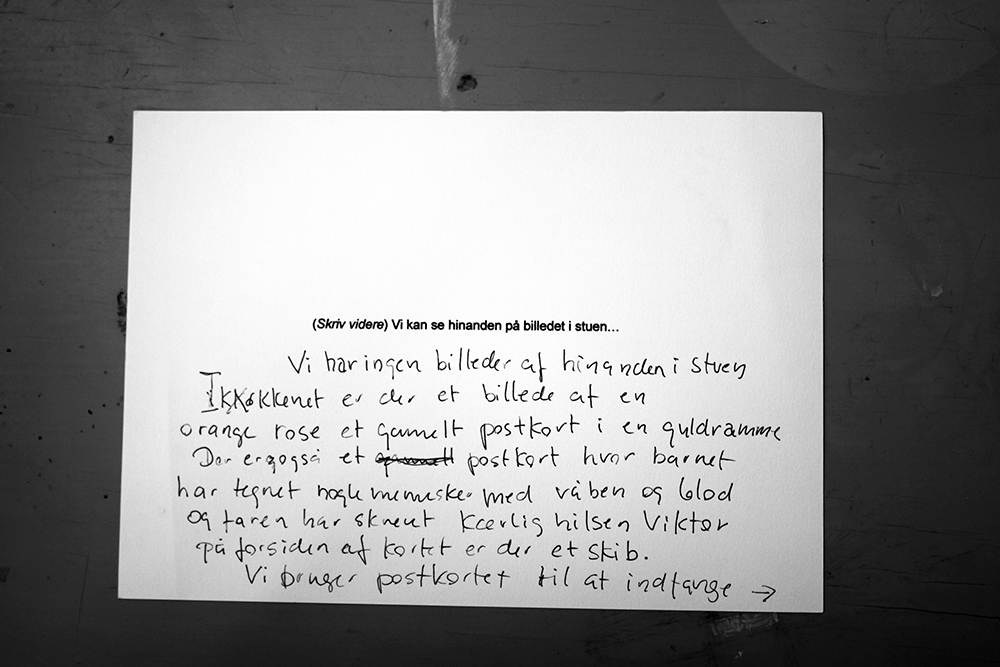 (Skriv videre) Vi kan se hinanden på billedet i stuen...
Vi har ingen billeder af hinanden i stuen
I køkkenet er der et billede af en
orange rose et gamelt postkort i en guldramme
Der er også et gammelt postkort hvor barnet
har tegnet nogle mennesker med våben og blod
og faren har skrevet Kærlig hilsen Viktor
på forsiden af kortet er der et skib.
Vi bruger postkortet til at indfange →